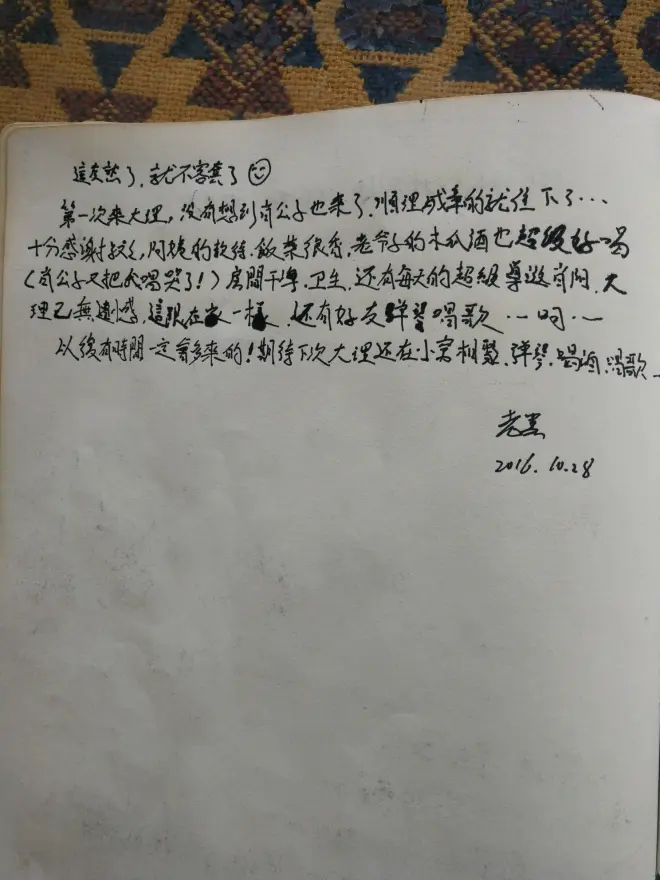 這友愁了，就不客氣了
第一次來大理，沒有想到肖公子也来了，順理成章的就住下了…
十分感謝叔父，阿婕的款待，飯菜很香，老爷子的木瓜酒也超級好喝
（肖公子又把我喝哭了！）房間干净，卫生，还有每天的超級導遊肖阿，大
理已無遺憾，這现在家一樣，还有好友弹琴唱歌…啊…
以後有時間一定會多來的！期待下次大理还在小宾相聚，弹琴，喝酒，唱歌
老黑
2016.10.28